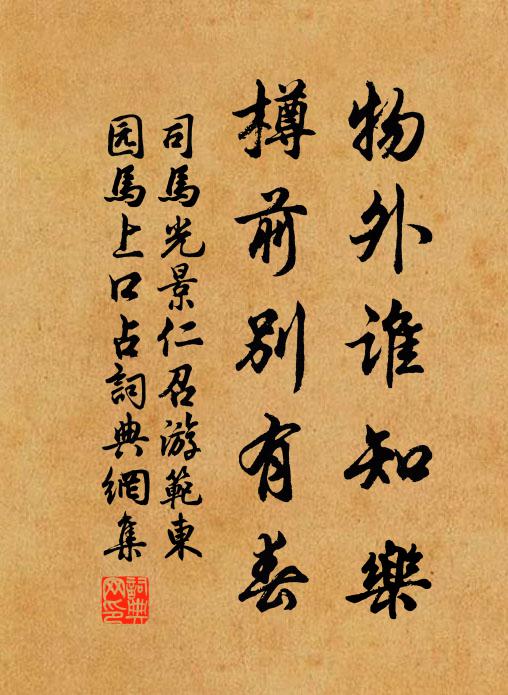 物外誰知樂
樽前別有春
司馬光景仁召游範東
园馬上口占詞典網集
詞典網印